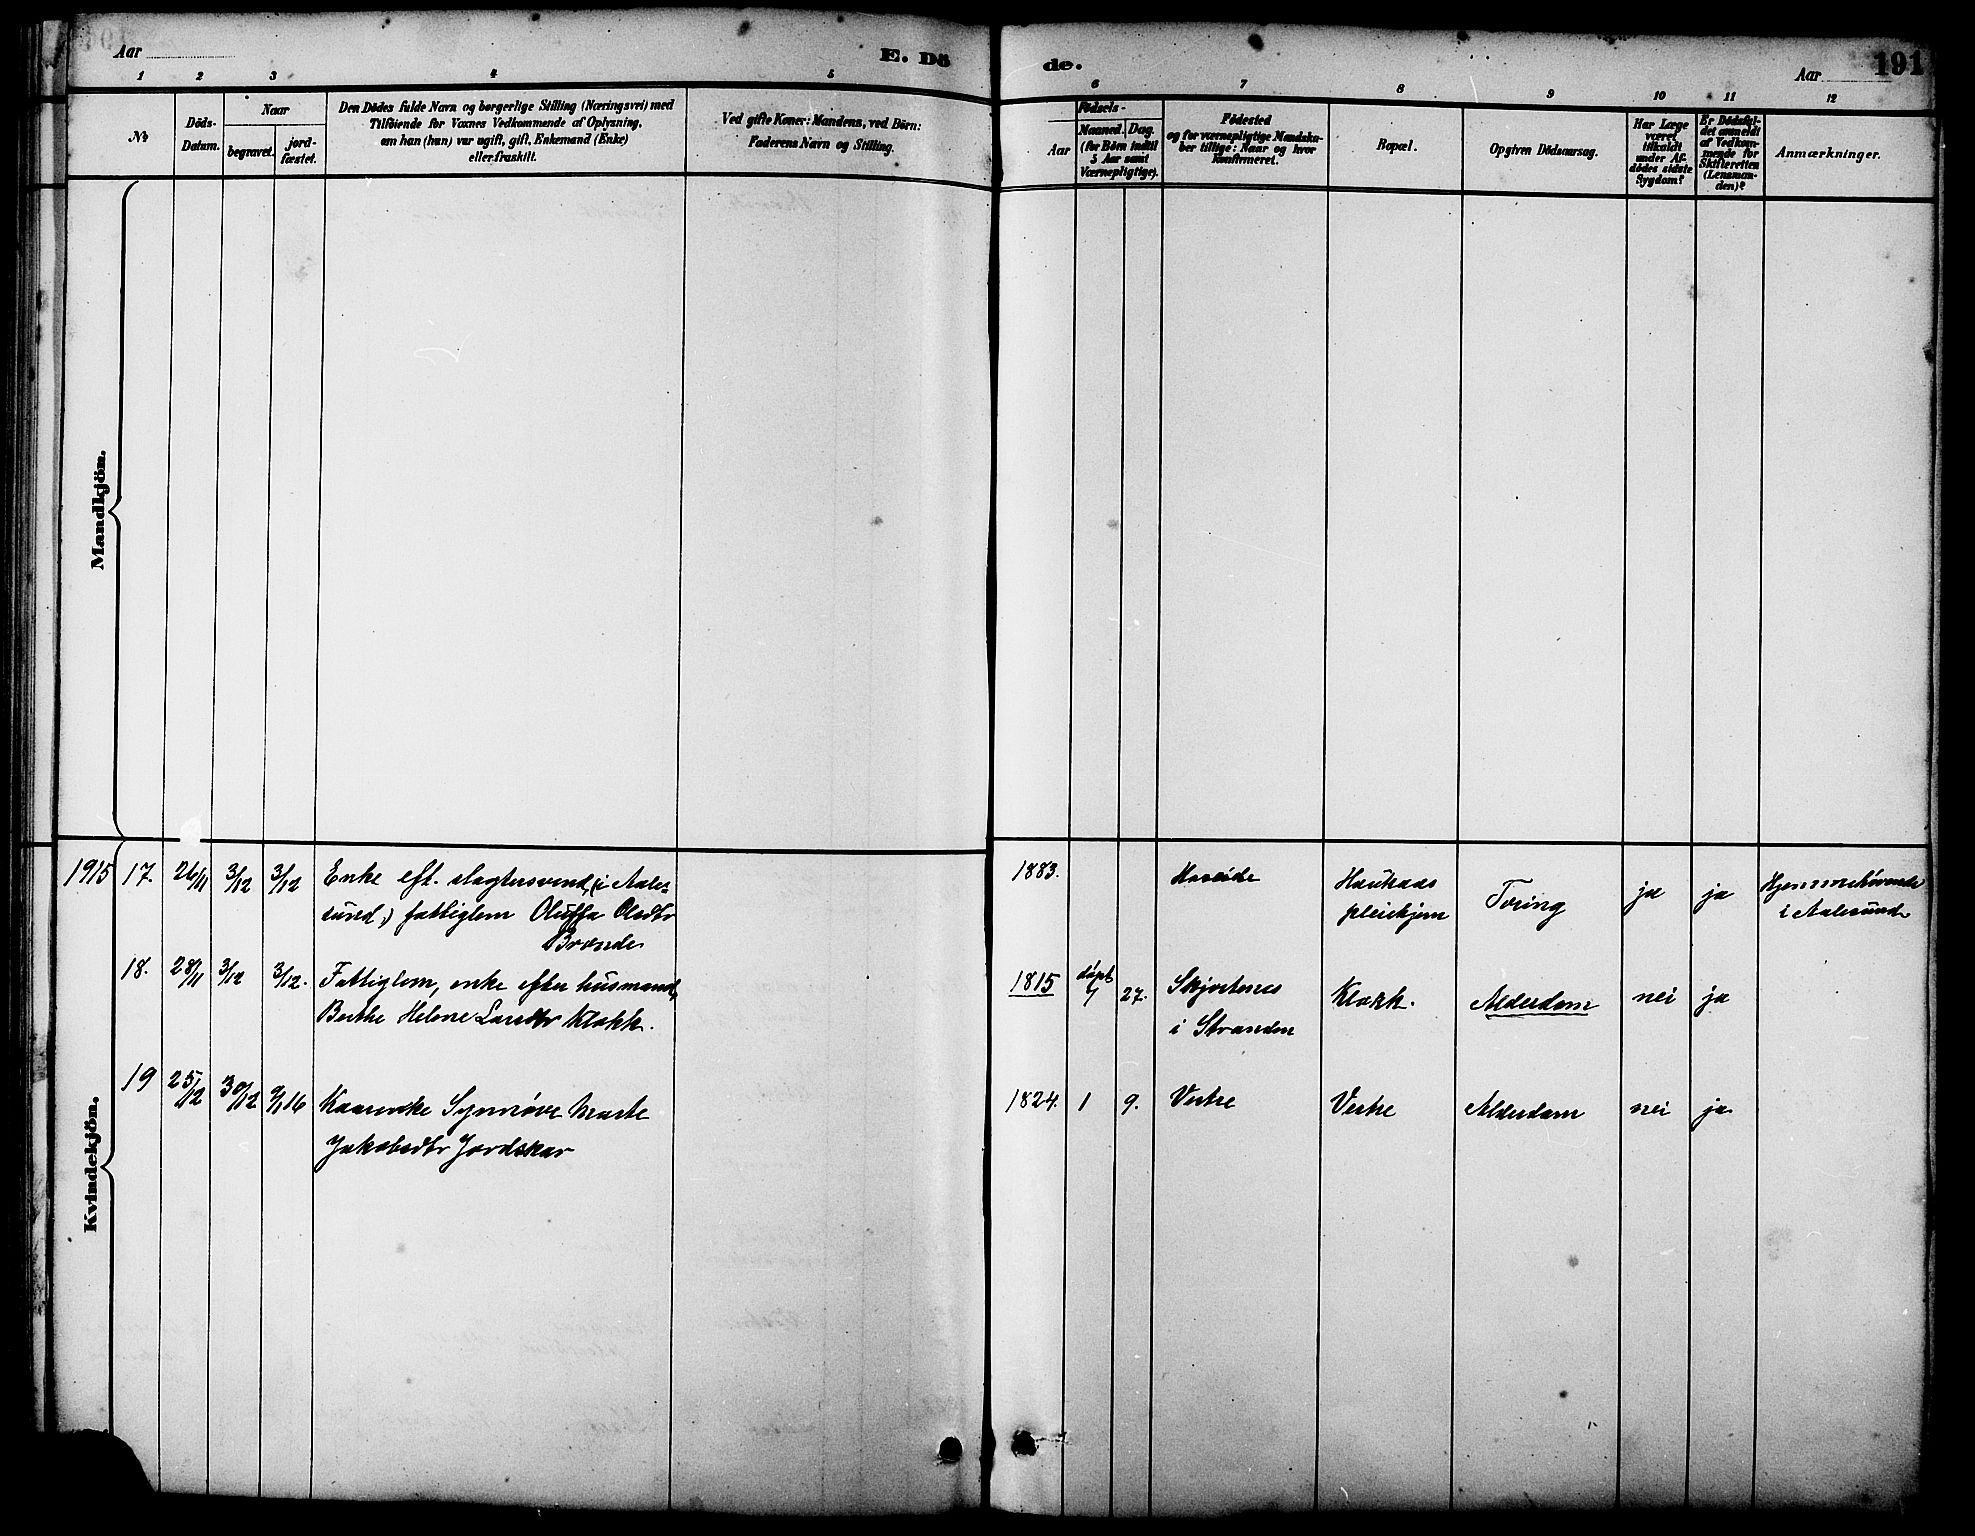 Aar
E. Dö
de.
Aar
191
1 2 3 4 5
6 7 8 9 10 11 12
No
Döds-
Datum.
Naar
begravet.
jord-
fæstet.
Den Dödes fulde Navn og borgerlige Stilling (Næringsvei) med
Tilföiende for Voxnes Vedkommende af Oplysning,
om han (hun) var ugift, gift, Enkemand (Enke)
eller fraskilt.
Ved gifte Koner: Mandens, ved Börn:
Faderens Navn og Stilling.
Födsels-
Aar
Maaned.
Dag.
(for Börn indtil
5 Aar samt
Værnepligtige).
Födested
og for værnepligtige Mandska-
ber tillige: Naar og hvor
konfirmeret.
Bopæl.
Opgiven Dödsaarsag.
Har Læge
været
tilkaldt
under Af-
dödes sidste
Sygdom?
Er Dödsfal-
det anmeldt
af Vedkom-
mende for
Skifteretten
(Lensman-
den)?
Anmærkninger.
Mandkjön.
Kvindekjön.
1915 17. 26/11 3/12 3/12 Enke eft. slagtersvend, (i Aale-
sund,) fattiglem Oluffa Olsdtr
Brande
1883. Hareide
pleiehjem
Tæring ja ja
Hjemmehørende
i Aalesund
18. 28/11 3/12 3/12. Fattiglem, enke efter husmand,
Berthe Helene Larsdtr Klokk.
1815 døpt
7 27. Skjortenes
i Stranden
Klokk. Alderdom nei ja
19 25/12 30/12 9/1 16 Kaarenke Synnøve Marte
Jakobsdtr Jordskar
1824. 1 9. Vestre Vestre Alderdom nei ja